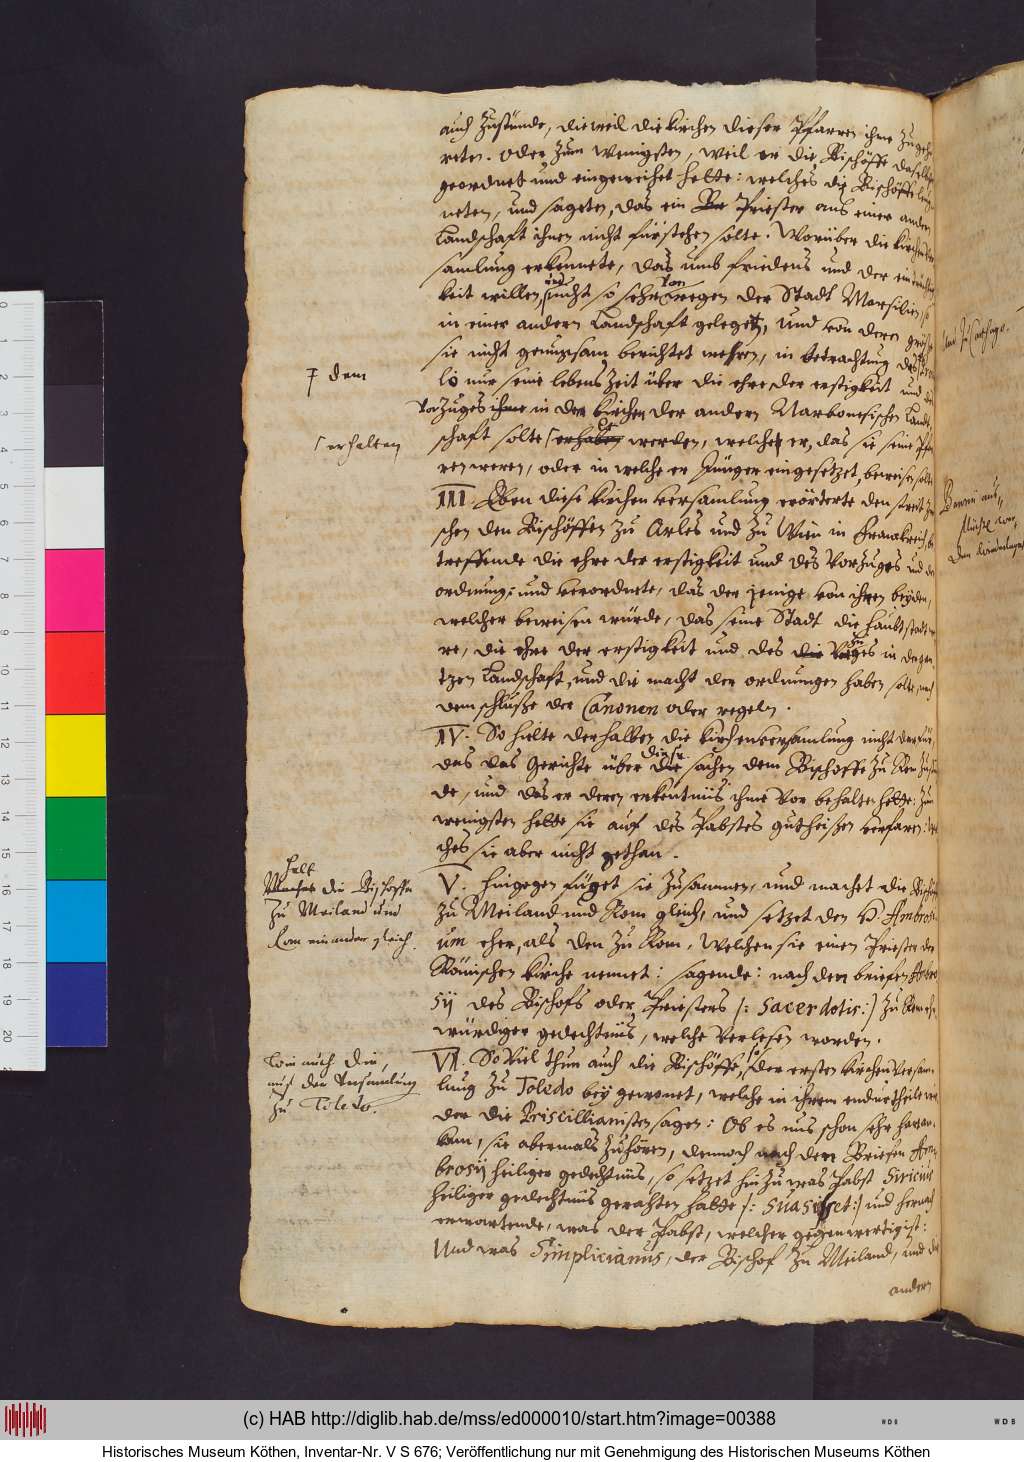 auch zustünde, dieweil die kirchen dieser Pfarren ihme zugehö
reten. oder zum wenigsten, weil er die Bischöffe daselbst
geordnet und eingeweihet hette: welches die Bischöffe leug
neten, und sageten, das ein Be Priester aus einer andern
Landschaft ihnen nicht fürstehen solte. Worüber die kirchenver
samlung erkennete, das umb friedens und der einträchtig
keit willen, und nicht so sehr von wegen der Stadt Marsilien, so
in einer andern Landschaft gelegen, und von deren grösse
sie nicht genungsam berichtet wehren, in betrachtung des
‡ dem
lo nur seine lebens Zeit über die ehre der erstigkeit und des
Vorzuges ihme in den kirchen der andern Narbonesischen Land-
schaft solte erhaben werden, welcher er, das sie seine Pfar
erhalten
ren weren, oder in welche er Jünger eingesetzet, beweisen solte
III. Eben diese kirchen versamlung erörterte den streit zwi
schen den Bischöffen zu Arles und zu Wien in Franckreich be
treffende die ehre der erstigkeit und des Vorzuges und der
ordnung: und verordnete, das der jenige von ihren beyden,
welcher beweisen würde, das seine Stadt die Haubtstadt we
re, die ehre der erstigkeit und des die Vorzuges in der gan
tzen Landschaft, und die macht der ordnungen haben solte, nach
dem schluße der Canonen oder regeln.
IV. So hielte derhalben die kirchenversamlung nicht darfür,
das das Gerichte über die diese sachen dem Bischoffe zu Rom zustün
de, und das er deren erkentnüs ihme vor behalten hette: zum
wenigsten hette sie auf des Pabstes gutheißen verfaren: wel
ches sie aber nicht gethan.
V. Hingegen füget sie zusammen, und machet die Bischöffe
Machet Helt die Bischoffe
zu Meiland und
Rom einander gleich.
zu Meiland und Rom gleich, und setzet den H. Ambrosi-
um eher, als den zu Rom, welchen sie einen Priester der
Römischen kirche nennet: sagende: nach den briefen Ambro
sij des Bischofs oder Priesters /: Sacerdotis:/ zu Rom ehr
würdiger gedechtnüs, welche verlesen worden.
VI. So viel thun auch die Bischöffe, so der ersten kirchen versam
Wie auch die,
auf der versamlung
zu Toledo.
lung zu Toledo bey gewonet, welche in ihrem endurtheile wie
der die Priscillianisten sagen: Ob es uns schon sehr hart an
kam, sie abermals zuhören, dennoch nach den Briefen Am
brosij heiliger gedechtnüs, so setzet hinzu was Pabst Siricius
heiliger gedechtnüs gerahten hatte /: suasisset:/ und hernach
erwartende, was der Pabst, welcher gegenwertig ist:
Und was Simplicianus, der Bischof zu Meiland, und die
andern
und zu Carthago.
(c) HAB http://diglib.hab.de/mss/ed000010/start.htm?image=00388
WDB
WDB
Historisches Museum Köthen, Inventar-Nr. V S 676; Veröffentlichung nur mit Genehmigung des Historischen Museums Köthen